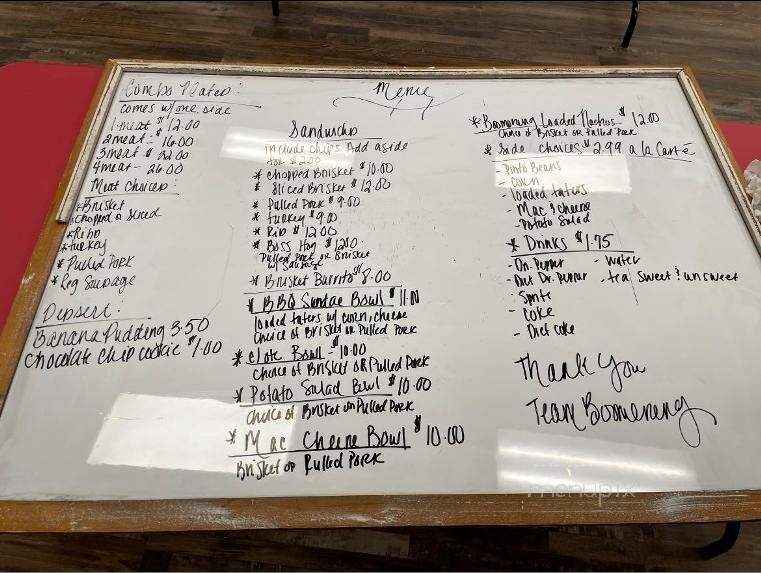 Menu
Combo Plates:
comes w/ one side
1 meat $12.00
2 meat - 16.00
3 meat $ 22.00
4 meat - 26.00
Meat Choices:
*Brisket
-chopped or sliced
*Ribs
*turkey
* Pulled Pork
* Reg Sausage
Dessert:
Banana Pudding 3.50
Chocolate chip cookie $1.00
Sandwichs
include chips Add aside
for $2.00
* chopped Brisket $10.00
* Sliced Brisket $12.00
* Pulled Pork $9.00
* turkey $9.00
* Rib $12.00
* Boss Hog $12.00
Pulled Pork or Brisket
w/ Sausage
* Brisket Burrito $8.00
* BBQ Sundae Bowl $11.00
loaded taters w/ corn, cheese
choice of Brisket or Pulled Pork
* Bowl - 10.00
Choice of Brisket OR Pulled Pork
* Potato Salad Bowl $10.00
Choice of Brisket or Pulled Pork
* Mac Cheese Bowl $10.00
Brisket or Pulled Pork
* Boomerang Loaded Nachos - $12.00
Choice of Brisket or Pulled Pork
* Side choices $2.99 a la Carte
- Pinto Beans
- corn
- loaded taters
- Mac & cheese
- Potato Salad
* Drinks $1.75
- Dr. Pepper - water
- Diet Dr. Pepper - tea sweet & unsweet
- Sprite
- Coke
- Diet coke
Thank You
Team Boomerang
menupix